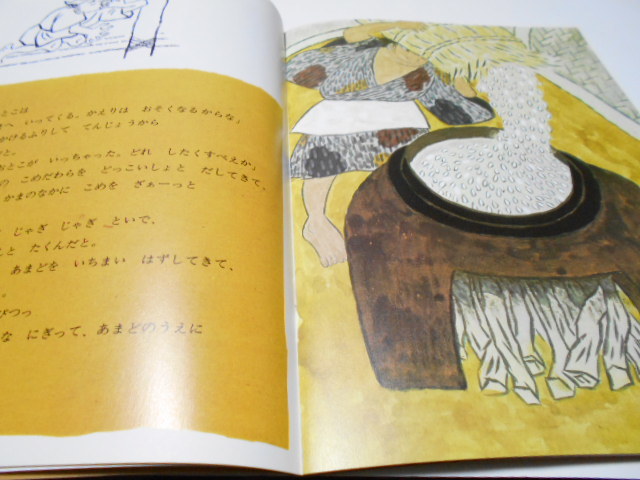 とこは
へ いってくる。かえりは おそくなるからな」
かけるふりして てんじょうから
と。
おとこが いっちゃった。どれ したくすべえか」
の こめだわらを どっこいしょと だしてきて、
かまのなかに こめを ざぁーっと
じゃぎ じゃぎ といで、
と たくんだと。
あまどを いちまい はずしてきて、
。
ぴつっ
な にぎって、あまどのうえに